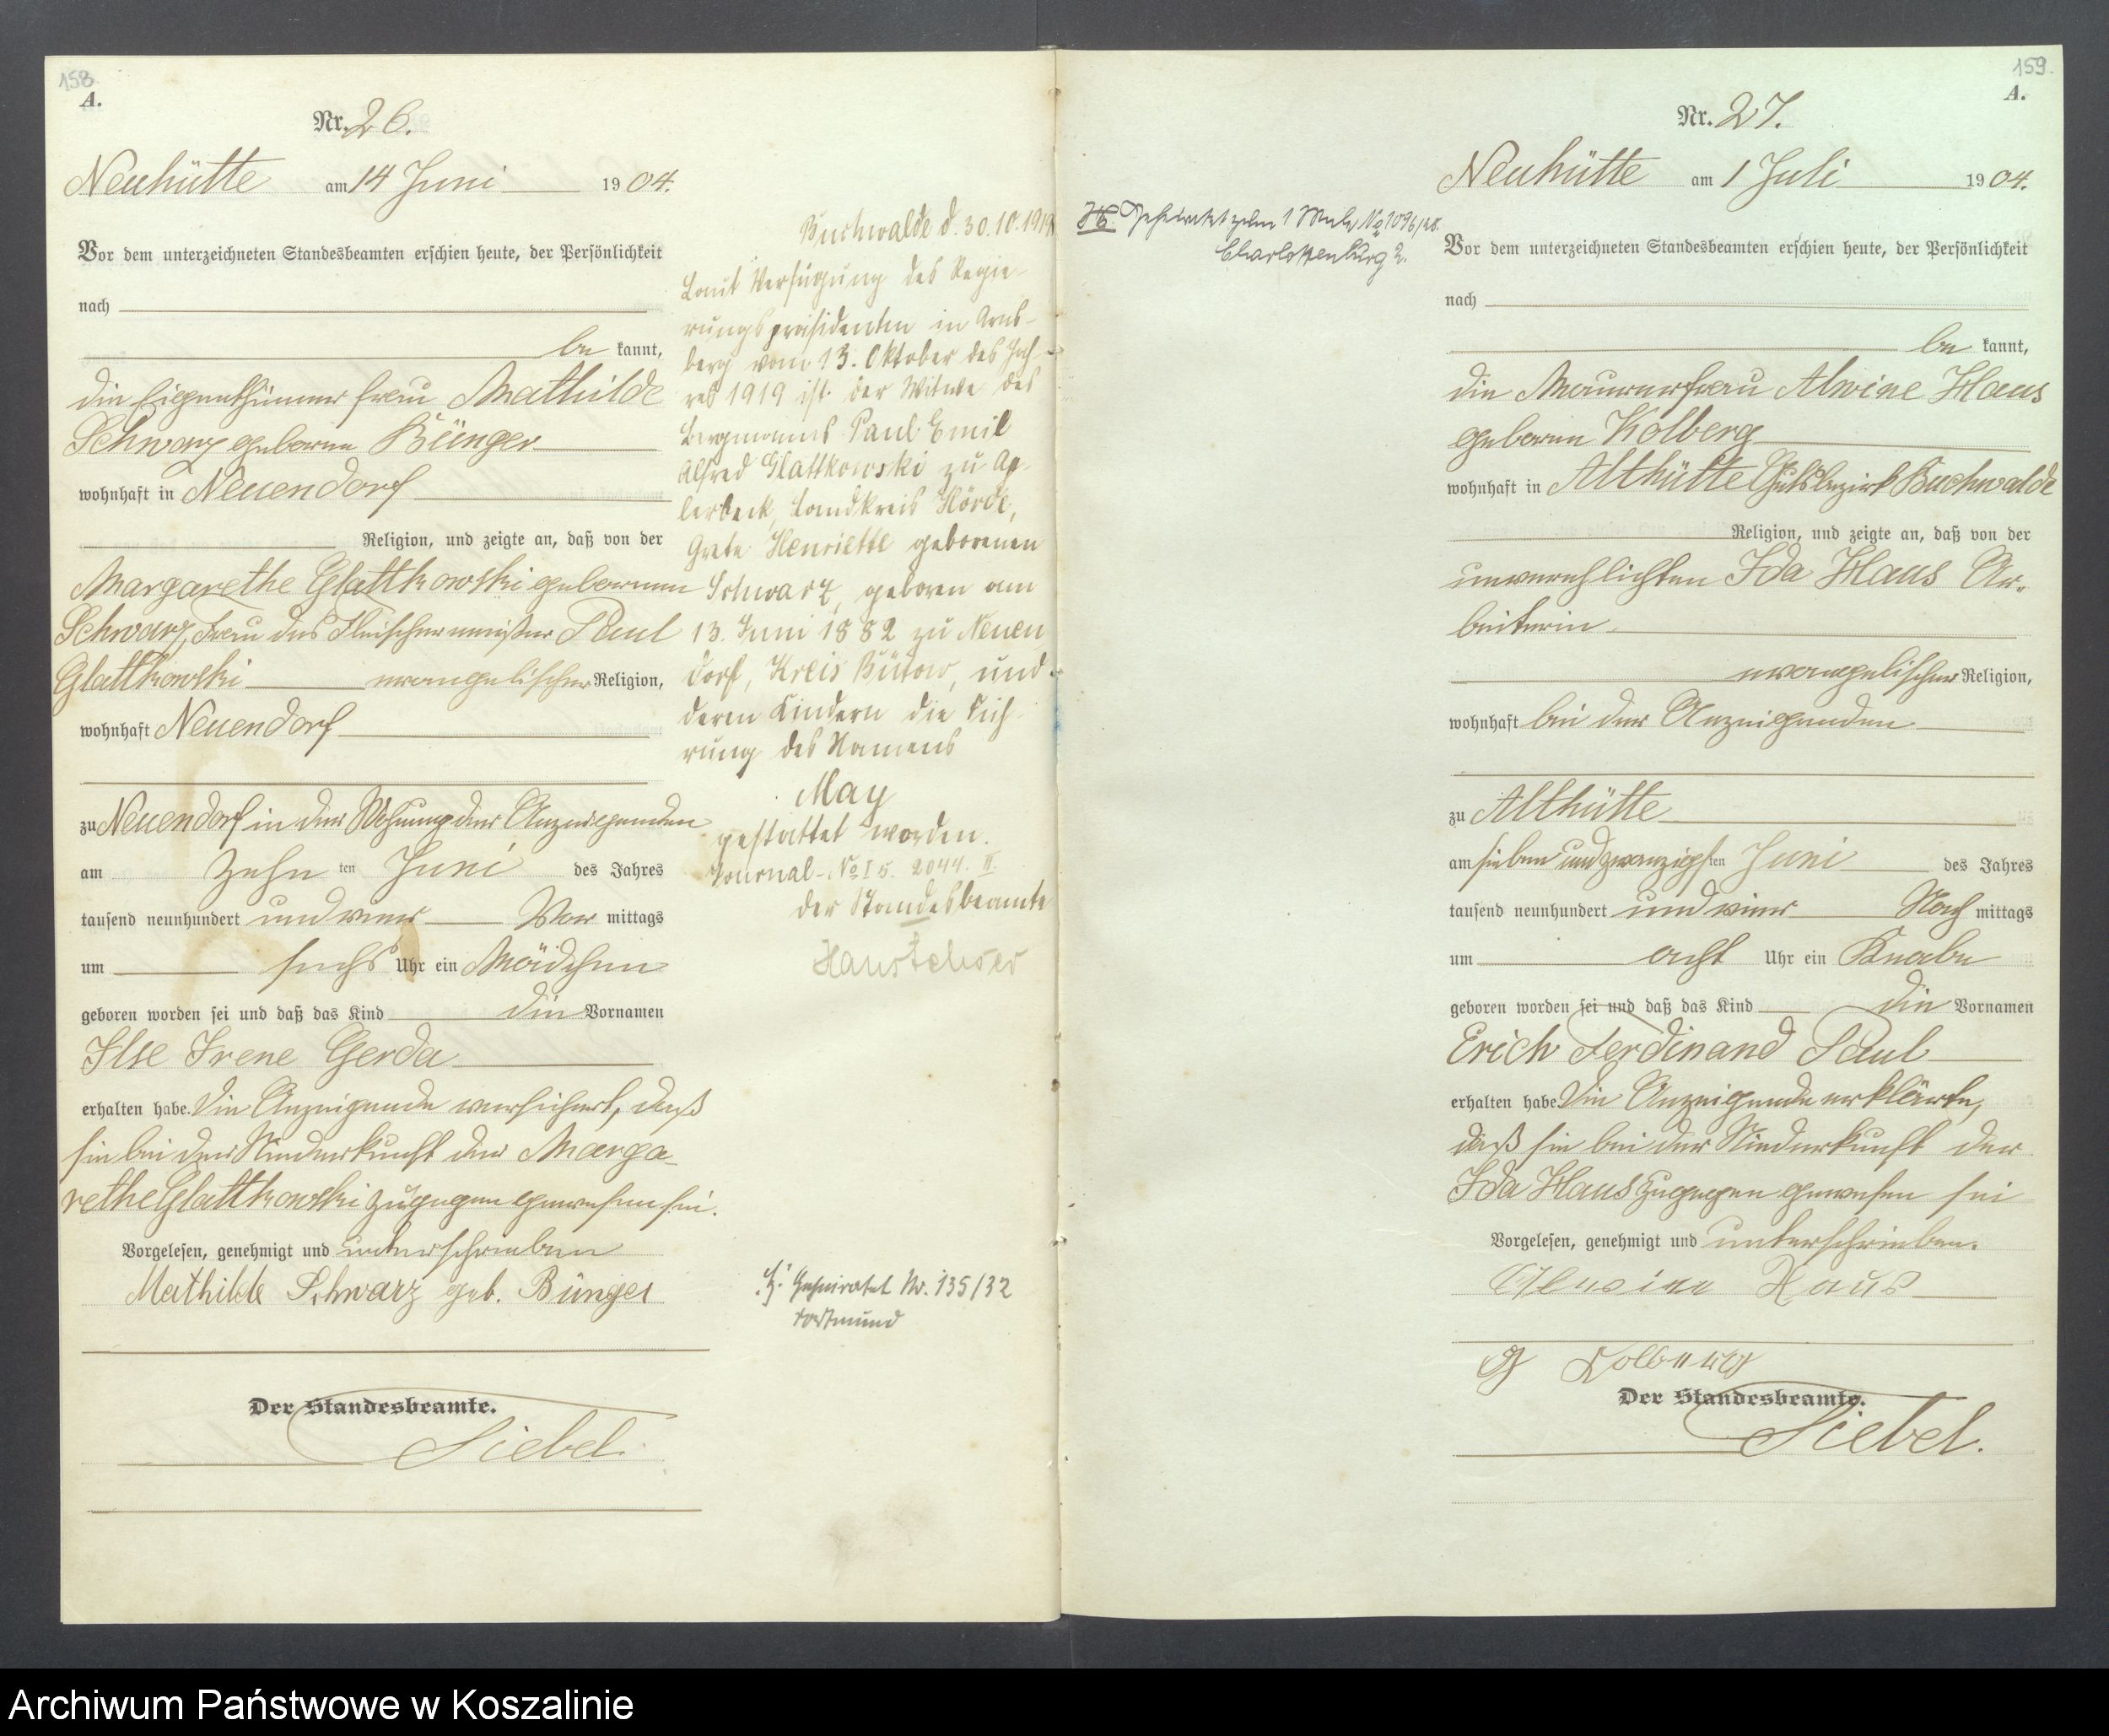 158.
A.
Nr. 26.
Neuhütte am 14 Juni 1904.
Vor dem unterzeichneten Standesbeamten erschien heute, der Persönlichkeit
nach
be kannt,
die Eigenthümerfrau Mathilde
Schwarz geborene Bünger
wohnhaft in Neuendorf
Religion, und zeigte an, daß von der
Margarethe Glattkowski geborenen
Schwarz, Frau des Fleischermeister Paul
Glattkowski evangelischer Religion,
wohnhaft Neuendorf
zu Neuendorf in der Wohnung der Anzeigenden
am zehn ten Juni des Jahres
tausend neunhundert und vier Vor mittags
um sechs Uhr ein Mädchen
geboren worden sei und daß das Kind die Vornamen
Ilse Irene Gerda
erhalten habe. Die Anzeigende versichert, daß
sie bei der Niederkunft der Marga-
rethe Glattkowski zugegen gewesen sei.
Vorgelesen, genehmigt und unterschrieben
Mathilde Schwarz geb. Bünger
Der Standesbeamte.
Siebel.
Buchwalde d. 30.10.1919
Laut Verfügung des Regie-
rungspräsidenten in Arns-
berg vom 13. Oktober des Jah-
res 1919 ist der Witwe des
Bergmanns Paul Emil
Alfred Glattkowski zu Ap-
lerbeck, Landkreis Hörde,
Grete Henriette geborenen
Schwarz, geboren am
13. Juni 1882 zu Neuen
dorf, Kreis Bütow, und
deren Kindern die Füh-
rung des Namens
May
gestattet worden.
Journal-No I 5. 2044. II.
der Standesbeamte
Geheiratet Nr. 135/32
Dortmund
159.
A.
Nr. 27.
Neuhütte am 1 Juli 1904.
No 1096/28.
Charlottenburg 2.
Vor dem unterzeichneten Standesbeamten erschien heute, der Persönlichkeit
nach
be kannt,
die Maurerfrau Alwine Haus
geborene Kolberg
wohnhaft in Althütte Gutsbezirk Buchwalde
Religion, und zeigte an, daß von der
unverehlichten Ida Haus Ar-
beiterin
evangelischer Religion,
wohnhaft bei der Anzeigenden
zu Althütte
am sieben und zwanzigsten Juni des Jahres
tausend neunhundert und vier Nach mittags
um acht Uhr ein Knabe
geboren worden sei und daß das Kind die Vornamen
Erich Ferdinand Paul
erhalten habe. Die Anzeigende erklärte,
daß sie bei der Niederkunft der
Ida Haus zugegen gewesen sei
Vorgelesen, genehmigt und unterschrieben.
Alwine Haus
g Kolberg
Der Standesbeamte.
Siebel.
Archiwum Państwowe w Koszalinie